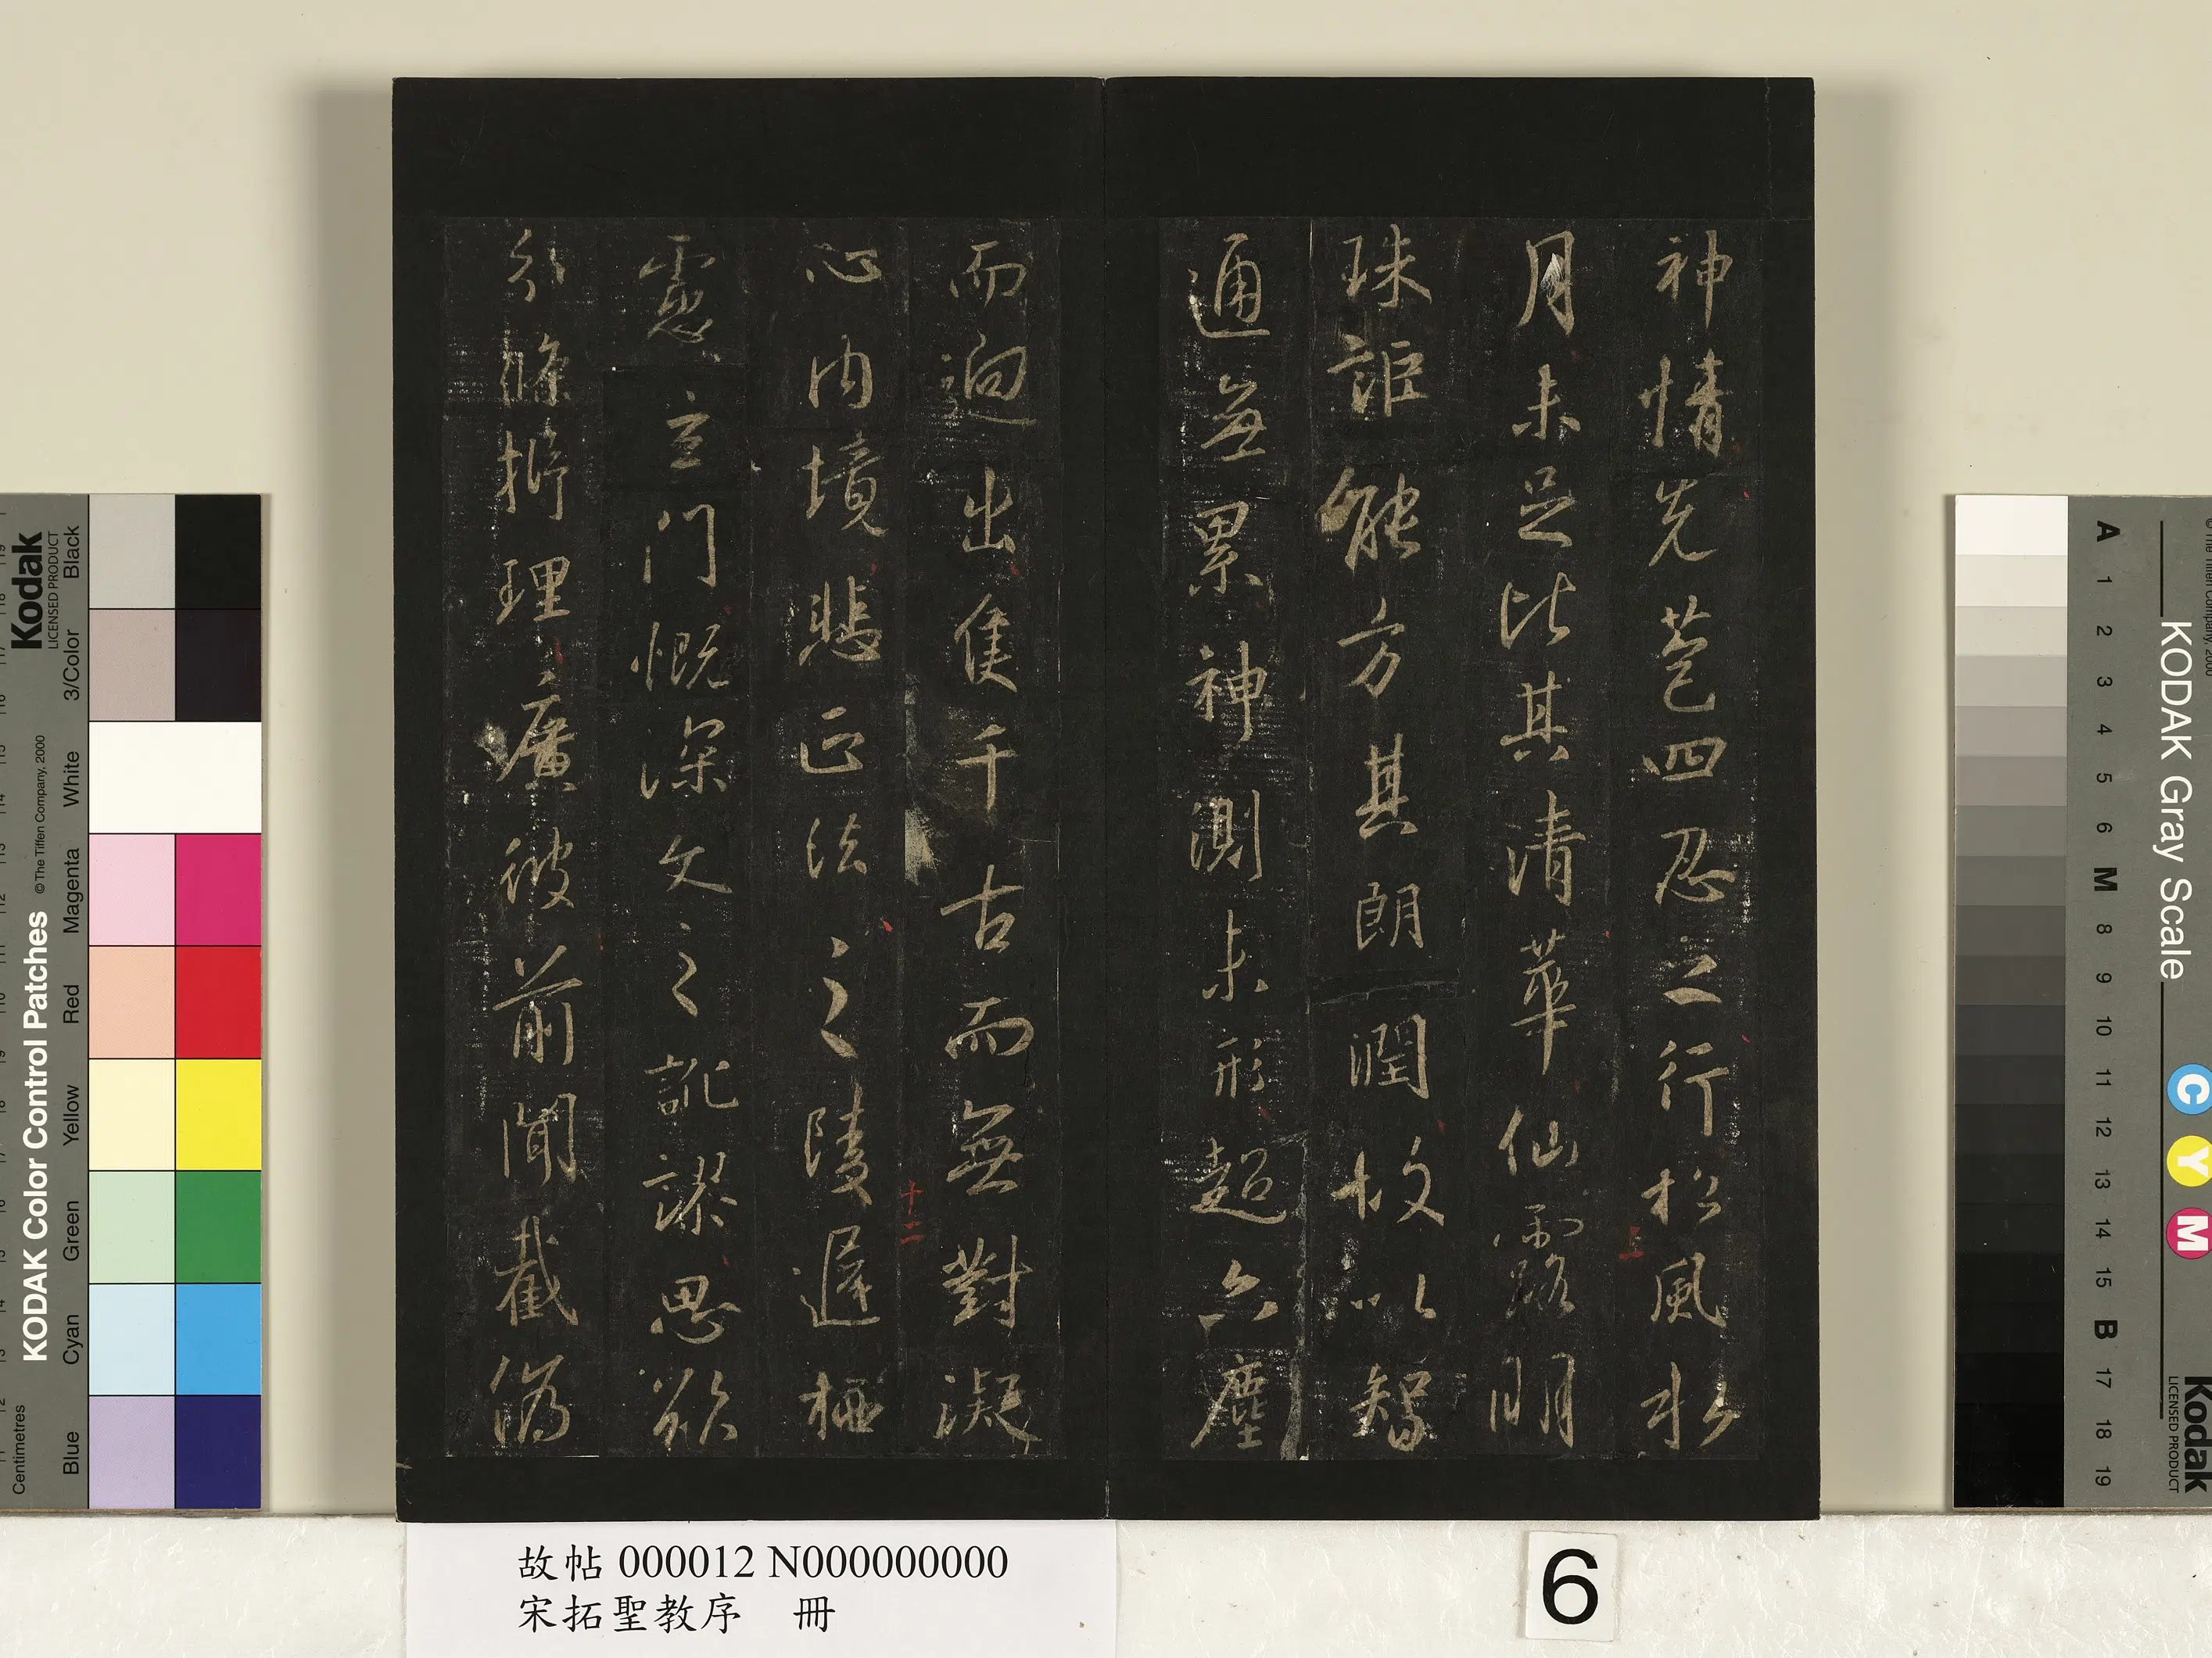 神情先苞四忍之行松風水
月未足比其清華仙露明
珠詎能方其朗潤故以智
通無累神測未形超六塵
而迥出隻千古而無對凝
心內境悲正法之陵遲栖
慮玄門慨深文之訛謬思欲
分條析理廣彼前聞截偽
十二
故帖 000012 N000000000
宋拓聖教序 冊
6
Kodak
LICENSED PRODUCT
KODAK Color Control Patches
© The Tiffen Company, 2000
Centimetres
Blue
Cyan
Green
Yellow
Red
Magenta
White
3/Color
Black
KODAK Gray Scale
C
Y
M
Kodak
LICENSED PRODUCT
A
1
2
3
4
5
6
M
8
9
10
11
12
13
14
15
B
17
18
19